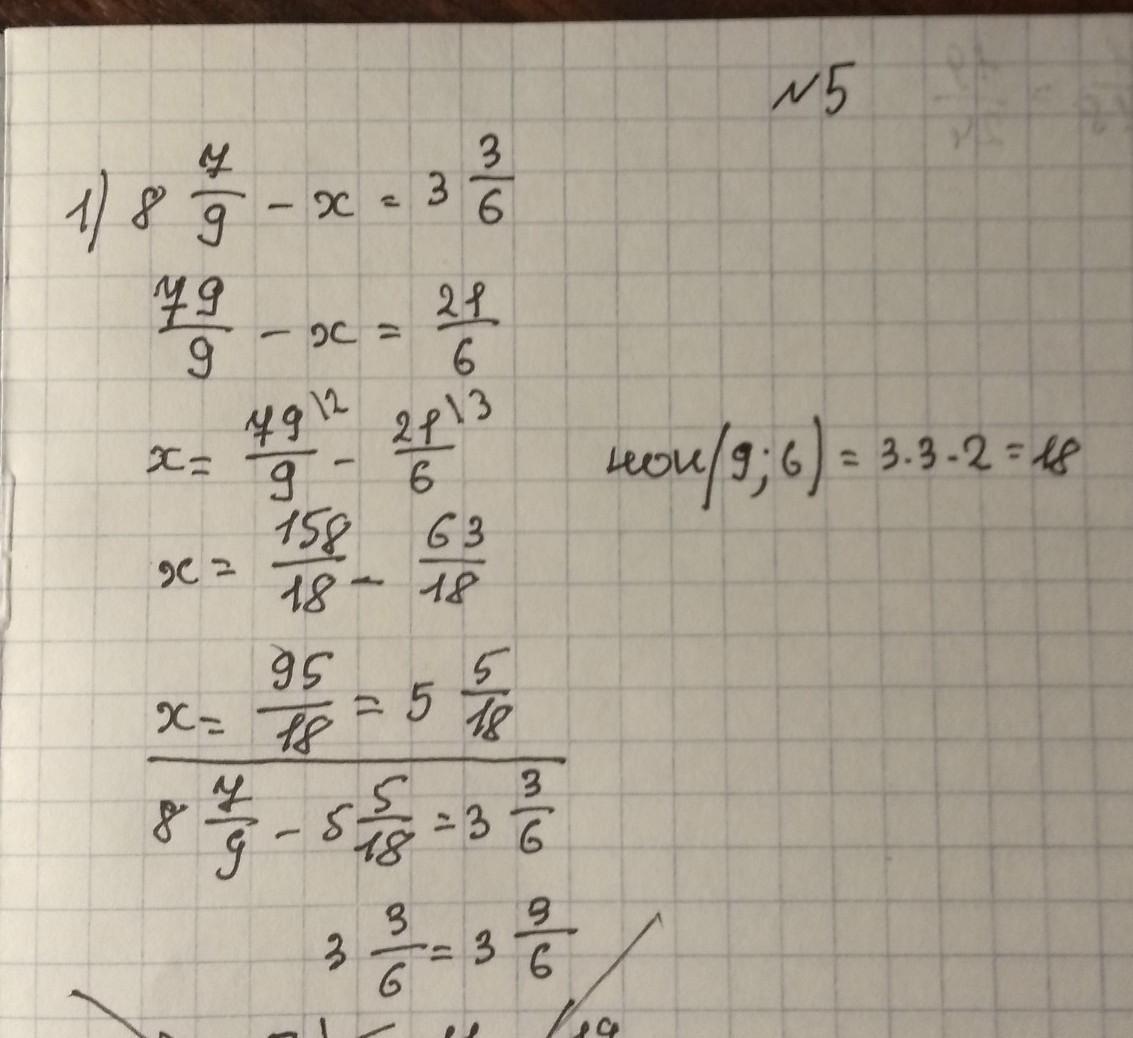 №5
1) 8 7/9 - x = 3 3/6
79/9 - x = 21/6
x = 79\2/9 - 21\3/6 нок(9;6) = 3·3·2 = 18
x = 158/18 - 63/18
x = 95/18 = 5 5/18
8 7/9 - 5 5/18 = 3 3/6
3 3/6 = 3 3/6